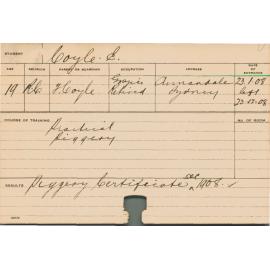 STUDENT Coyle. E.
AGE RELIGION PARENT OR GUARDIAN OCCUPATION ADDRESS DATE OF ENTRANCE
19 R.C. F. Coyle Retired Annandale Sydney 23.1.08 left 23.12.08
COURSE OF TRAINING NO. OF ROOM
Practical
Piggery
RESULTS Piggery Certificate Dec 1908.